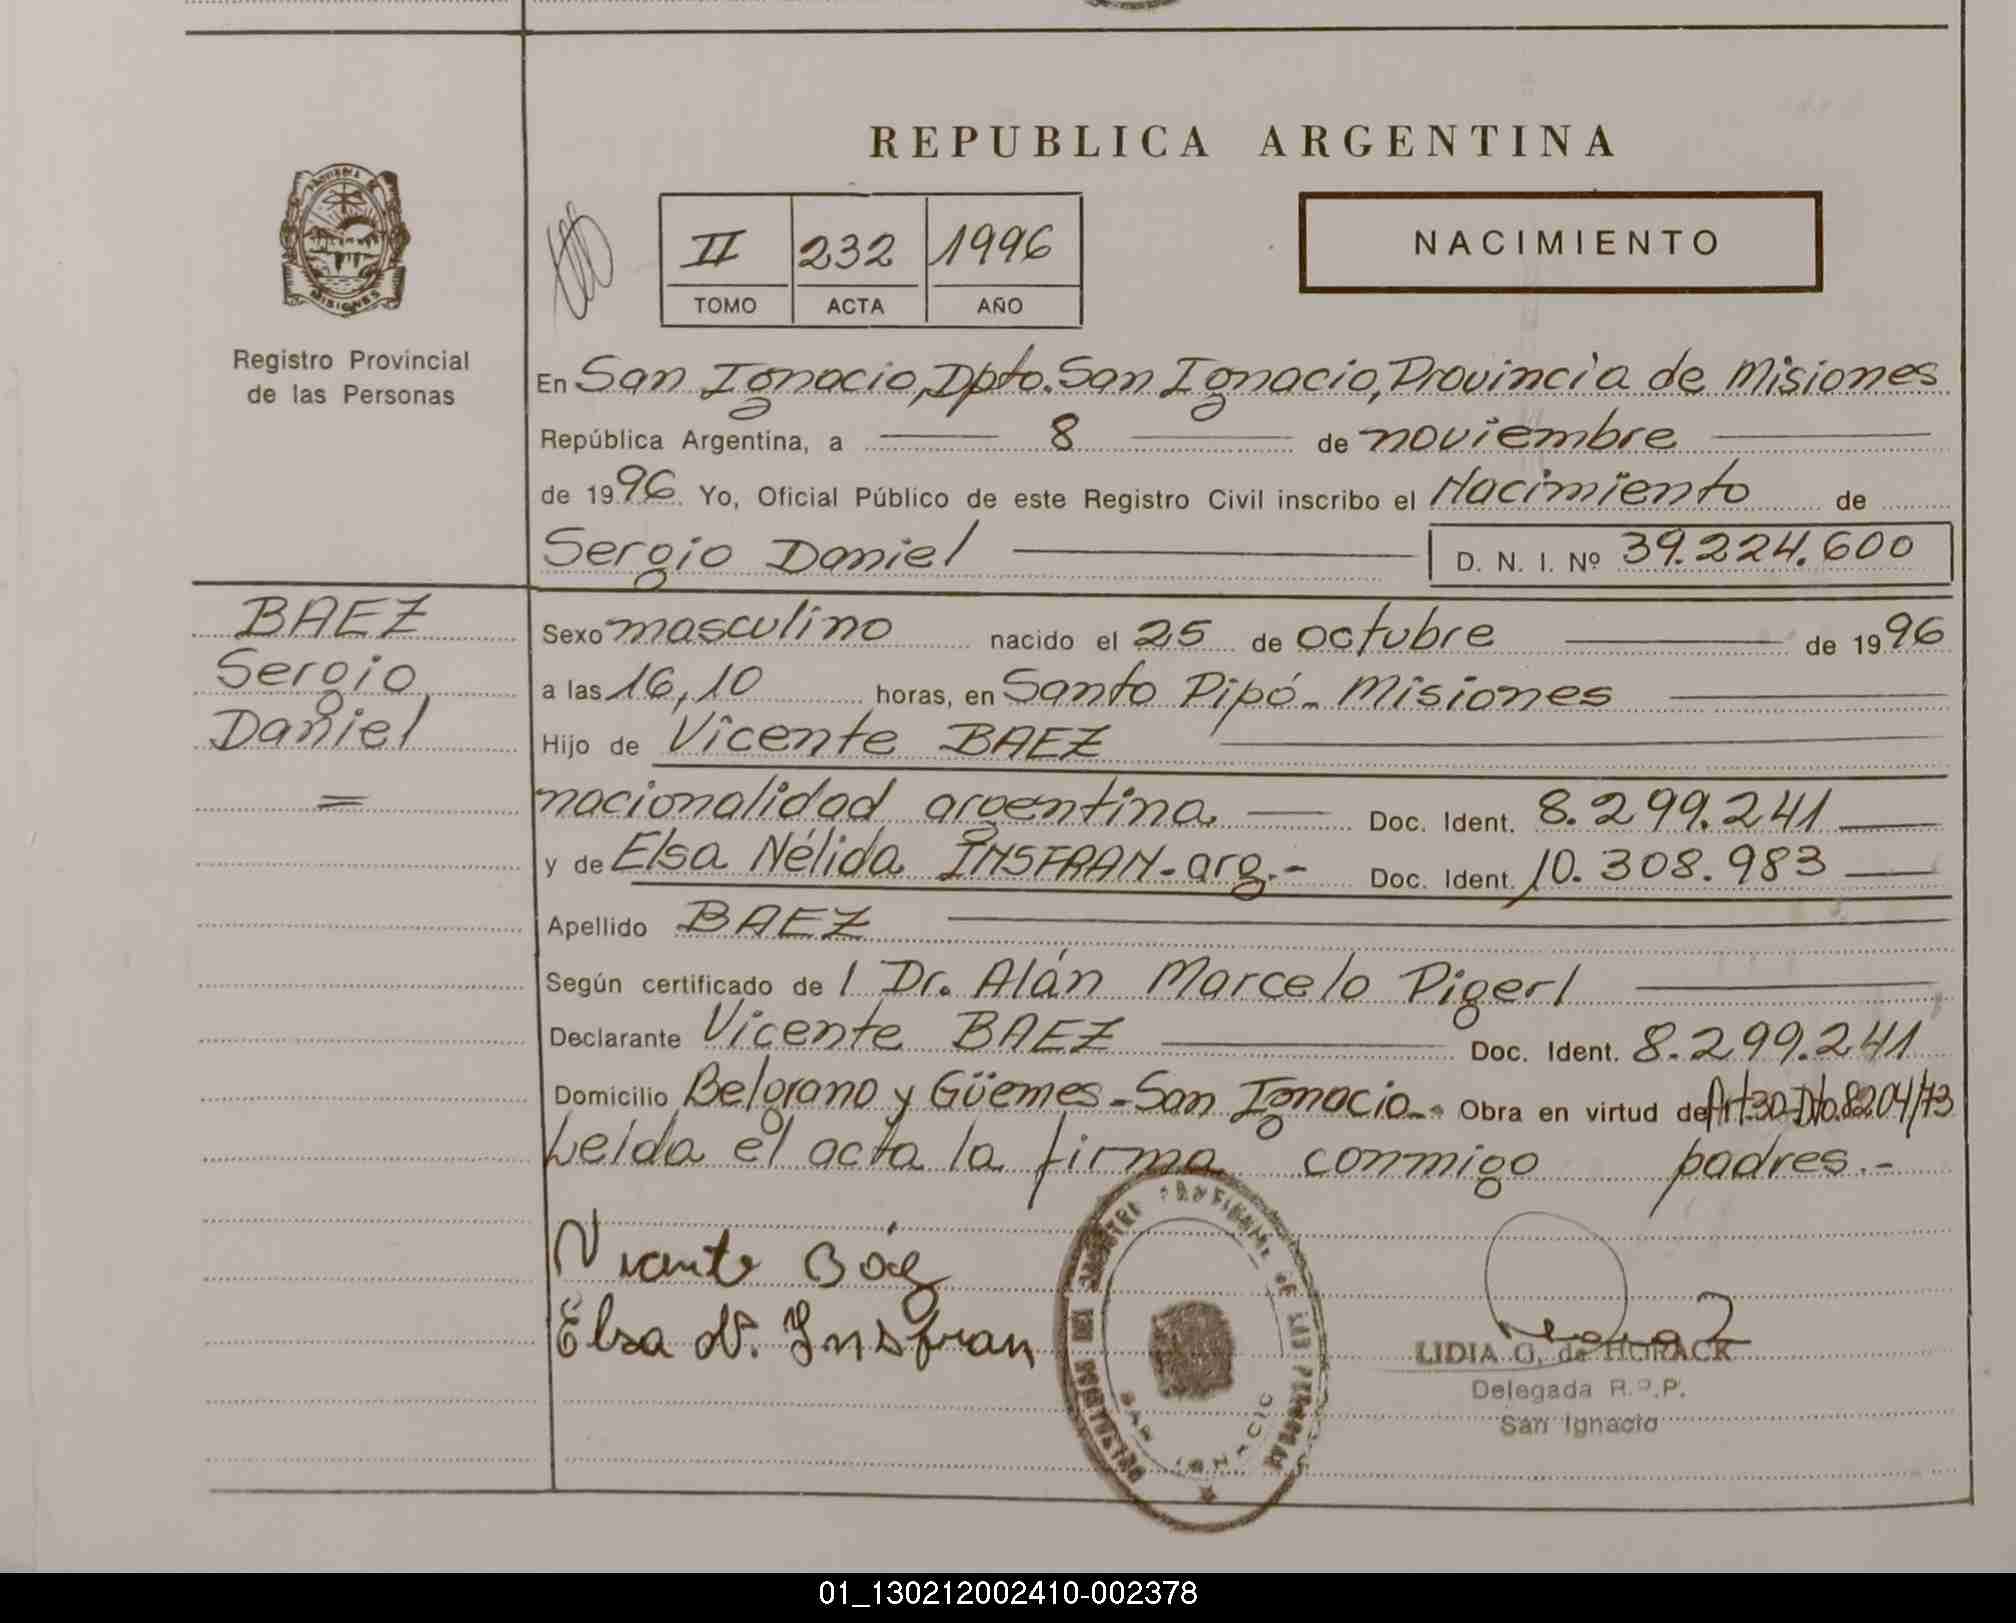 REPUBLICA ARGENTINA
PROVINCIA DE
MISIONES
Registro Provincial
de las Personas
II 232 1996
TOMO ACTA AÑO
NACIMIENTO
En San Ignacio, Dpto. San Ignacio, Provincia de Misiones
República Argentina, a 8 de noviembre
de 1996. Yo, Oficial Público de este Registro Civil inscribo el Nacimiento de
Sergio Daniel D. N. I. Nº 39.224.600
BAEZ
Sergio
Daniel
=
Sexo masculino nacido el 25 de octubre de 1996
a las 16,10 horas, en Santo Pipó - Misiones
Hijo de Vicente BAEZ
nacionalidad argentina Doc. Ident. 8.299.241
y de Elsa Nélida INSFRAN - arg.- Doc. Ident. 10.308.983
Apellido BAEZ
Según certificado de l Dr. Alán Marcelo Pigerl
Declarante Vicente BAEZ Doc. Ident. 8.299.241
Domicilio Belgrano y Güemes - San Ignacio.- Obra en virtud de Art 30-Dto. 8204/73
Leída el acta la firma conmigo padres.-
Vicente Báez
Elsa N. Insfran
REGISTRO PROVINCIAL DE LAS PERSONAS
SAN IGNACIO
LIDIA G. de HORACK
Delegada R.P.P.
San Ignacio
01_130212002410-002378